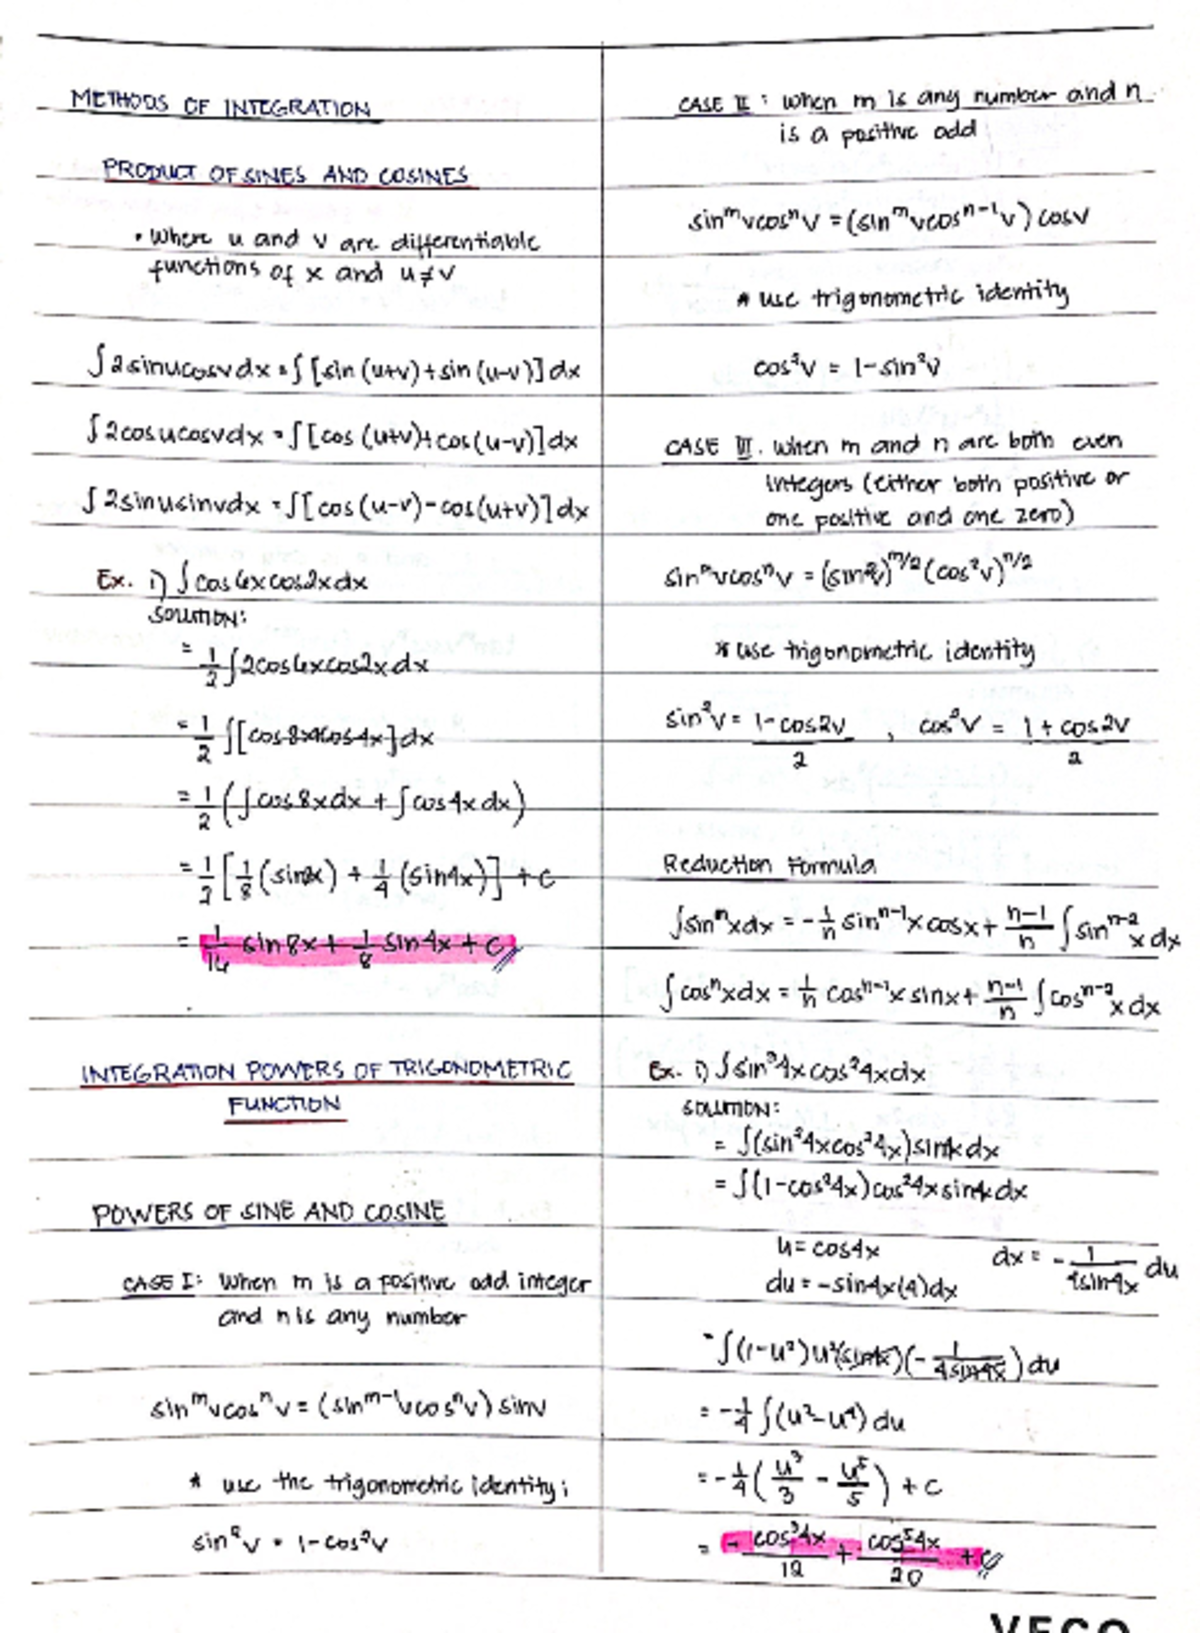 METHODS OF INTEGRATION
PRODUCT OF SINES AND COSINES
• Where u and v are differentiable
functions of x and u≠v
∫2sinucosvdx = ∫[sin(u+v)+sin(u-v)]dx
∫2cosucosvdx = ∫[cos(u+v)+cos(u-v)]dx
∫2sinusinvdx = ∫[cos(u-v)-cos(u+v)]dx
Ex. i) ∫cos6xcos2xdx
SOLUTION:
= 1/2 ∫2cos6xcos2xdx
= 1/2 ∫[cos8x+cos4x]dx
= 1/2 (∫cos8xdx + ∫cos4xdx)
= 1/2 [1/8 (sin8x) + 1/4 (sin4x)] + C
= 1/16 sin8x + 1/8 sin4x + C
INTEGRATION POWERS OF TRIGONOMETRIC
FUNCTION
POWERS OF SINE AND COSINE
CASE I: When m is a positive odd integer
and n is any number
sin^m vcos^n v = (sin^m-1 vcos^n v) sinv
* use the trigonometric identity;
sin²v = 1-cos²v
CASE II: when m is any number and n
is a positive odd
sin^m vcos^n v = (sin^m vcos^n-1 v) cosv
* use trigonometric identity
cos²v = 1-sin²v
CASE III. when m and n are both even
integers (either both positive or
one positive and one zero)
sin^m vcos^n v = (sin²v)^m/2 (cos²v)^n/2
* use trigonometric identity
sin²v = 1-cos2v/2 , cos²v = 1+cos2v/2
Reduction Formula
∫sin^n xdx = -1/n sin^n-1 xcosx + n-1/n ∫sin^n-2 xdx
∫cos^n xdx = 1/n cos^n-1 xsinx + n-1/n ∫cos^n-2 xdx
Ex. i) ∫sin³4xcos²4xdx
SOLUTION:
= ∫(sin²4xcos²4x)sin4xdx
= ∫(1-cos²4x)cos²4xsin4xdx
u = cos4x dx = -1/4sin4x du
du = -sin4x(4)dx
= ∫(1-u²)u²(sin4x)(-1/4sin4x)du
= -1/4 ∫(u²-u⁴)du
= -1/4 (u³/3 - u⁵/5) + C
= -cos³4x/12 + cos⁵4x/20 + C